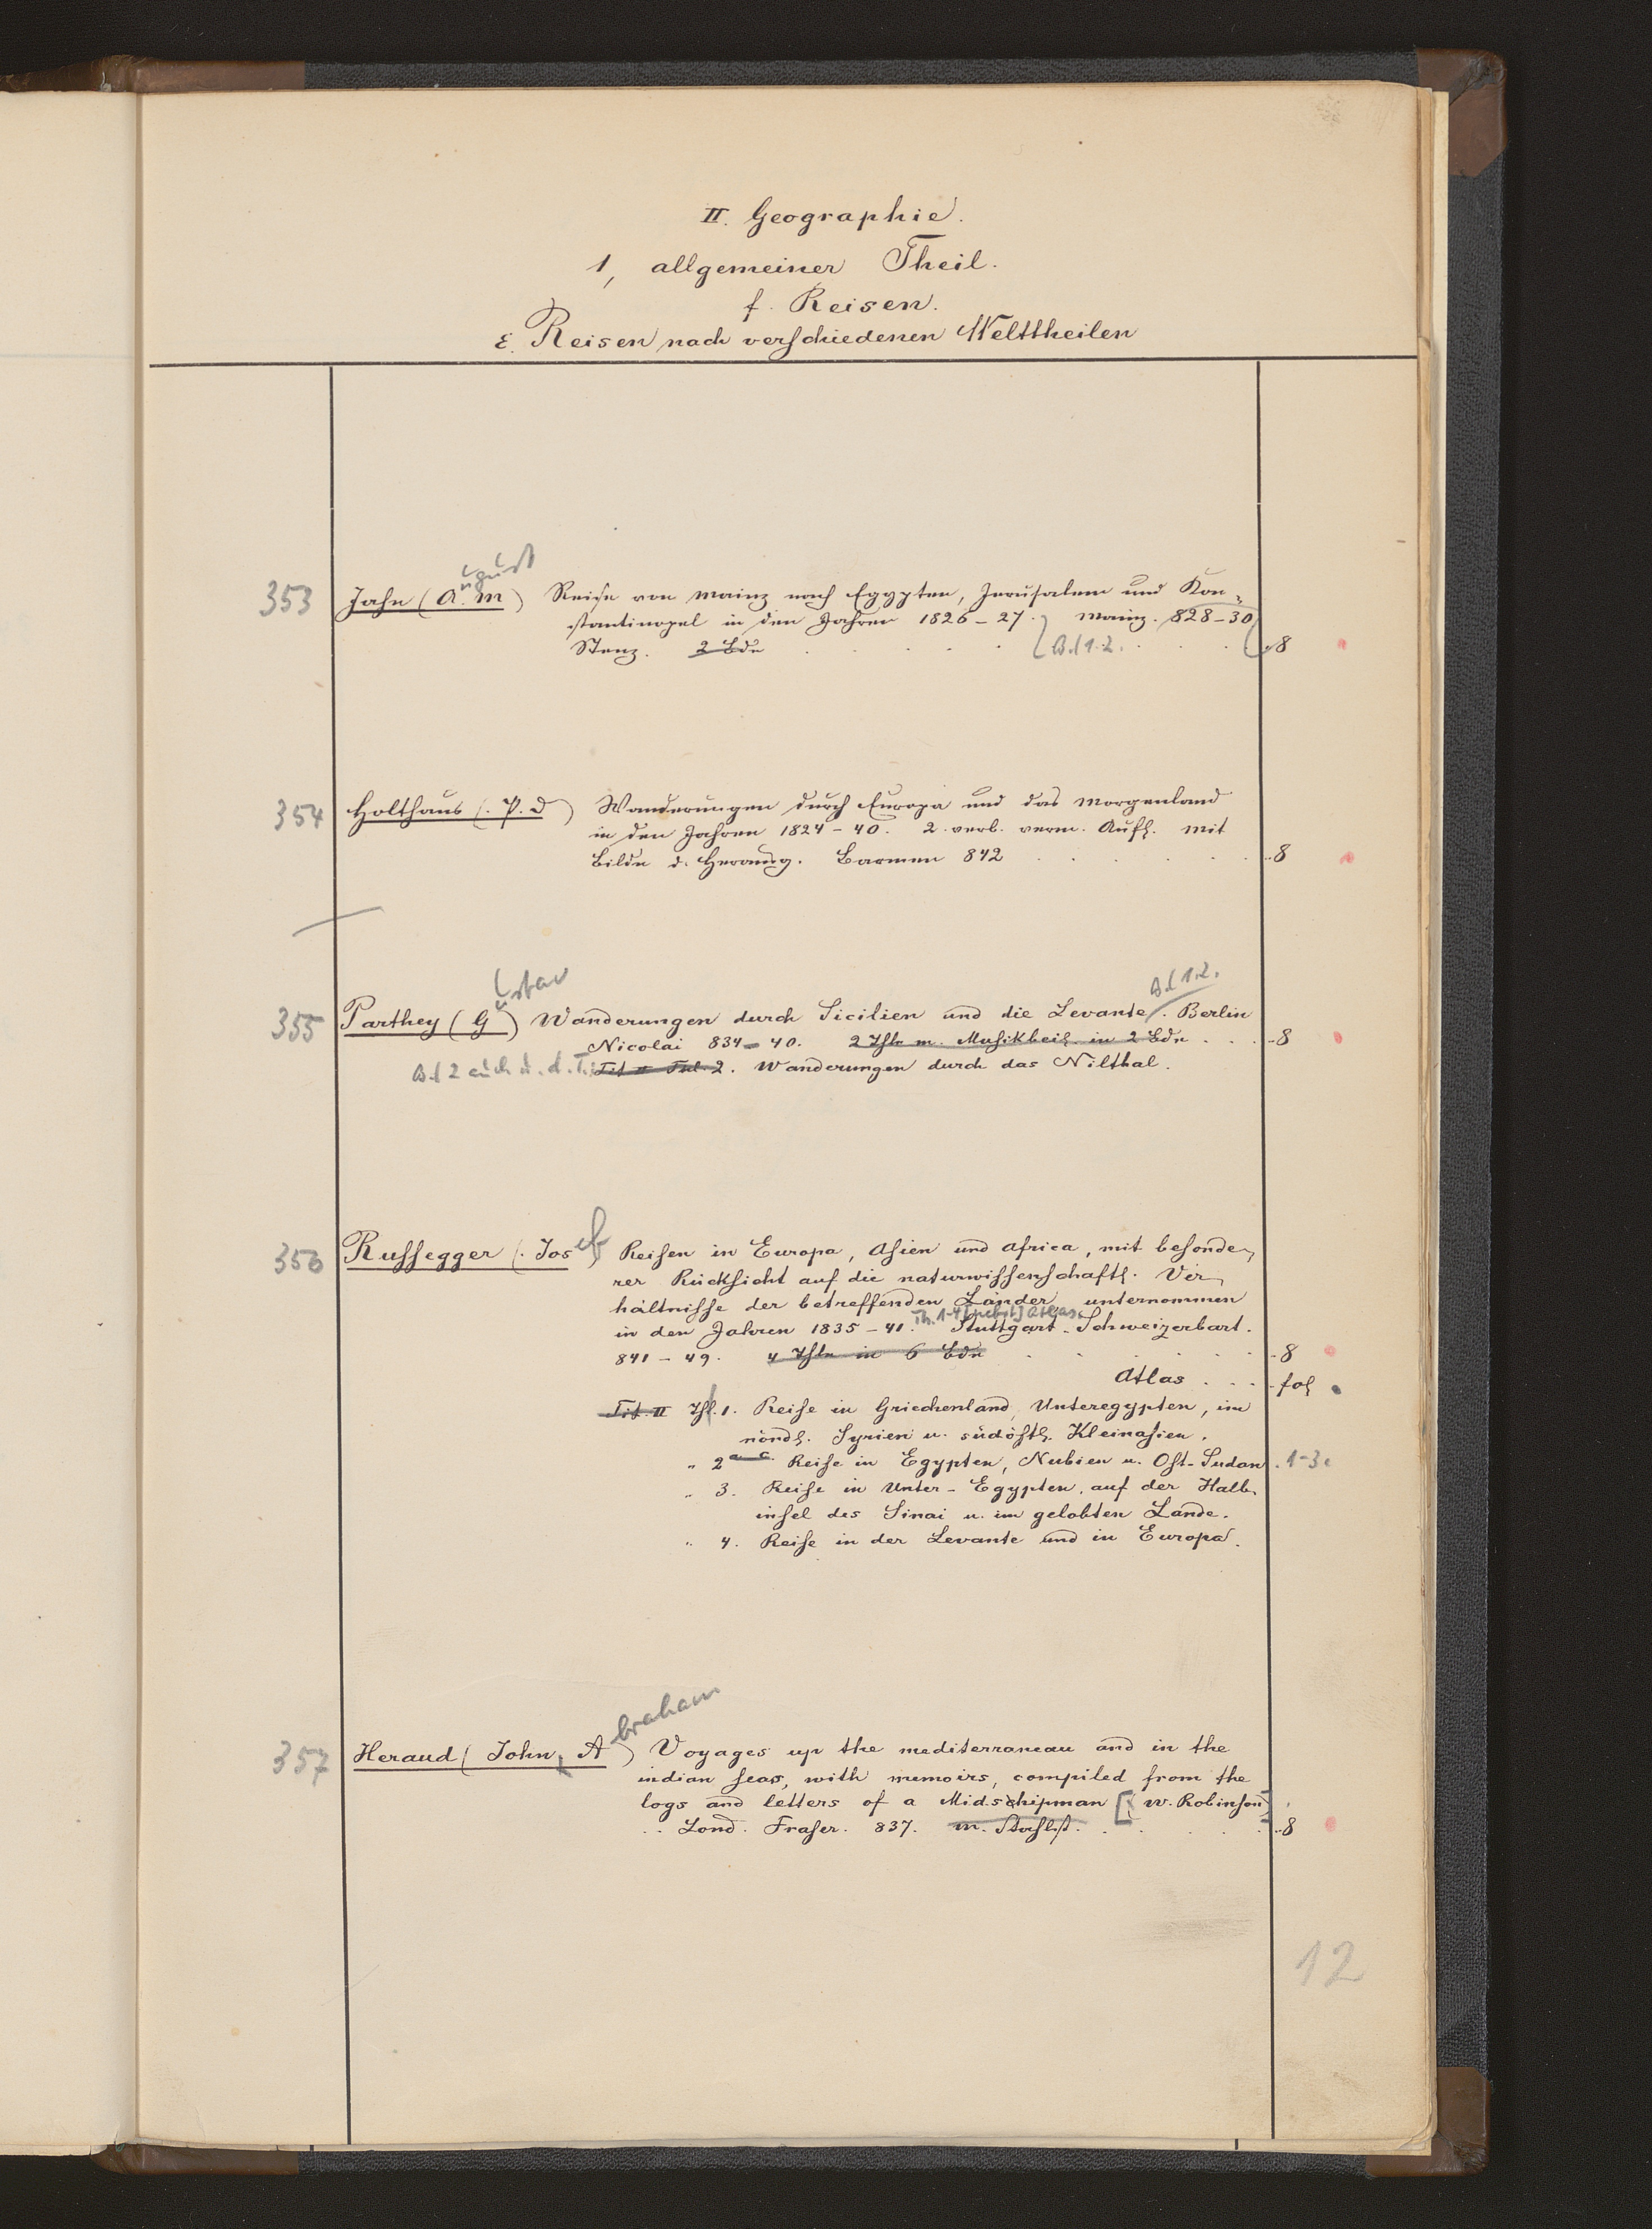 II. Geographie.
1, allgemeiner Theil.
f. Reisen.
ε. Reisen nach verschiedenen Welttheilen
353 Jahn (A. M) ugust Reise von Mainz nach Egypten, Jerusalem und Kon-
stantinopel in den Jahren 1826-27. Mainz. 828-30
Stenz. 2 Bde Bd 1.2. 8
354 Holthaus (. P. D) Wanderungen durch Europa und das Morgenland
in den Jahren 1824-40. 2. verb. verm. Aufl. Mit
Bilde d. Herausg. Barmen 842 8
355 Parthey (G ustav) Wanderungen durch Sicilien und die Levante. Bd 1.2. Berlin
Nicolai 834-40. 2 Thle m. Musikbeil. in 2 Bdn 8
Bd 2 auch u. d. T.: Tit II Thl. 2. Wanderungen durch das Nilthal.
356 Russegger (. Jos ef) Reisen in Europa, Asien und Africa, mit besonde-
rer Rücksicht auf die naturwissenschaftl. Ver-
hältnisse der betreffenden Länder, unternommen
in den Jahren 1835-41. Th. 1-4 [nebst] Atlas. Stuttgart. Schweizerbart.
841-49. 4 Thle in 6 Bdn 8
Atlas fol
Tit. II Thl. 1. Reise in Griechenland, Unteregypten, im
nördl. Syrien u. südöstl. Kleinasien.
" 2 a-c. Reise in Egypten, Nubien u. Ost-Sudan. 1-3.
" 3. Reise in Unter-Egypten, auf der Halb-
insel des Sinai u. im gelobten Lande.
" 4. Reise in der Levante und in Europa.
357 Heraud (John, A braham) Voyages up the mediterranean and in the
indian seas, with memoirs, compiled from the
logs and letters of a Midschipman [W. Robinson]
Lond. Fraser. 837. m. Stahlst. 8
12